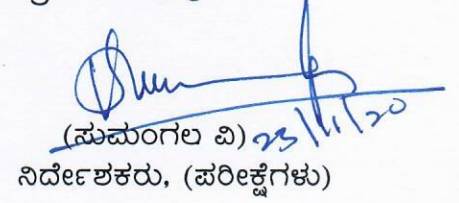 (ಸುಮಂಗಲ ವಿ) 23/11/20
ನಿರ್ದೇಶಕರು, (ಪರೀಕ್ಷೆಗಳು)